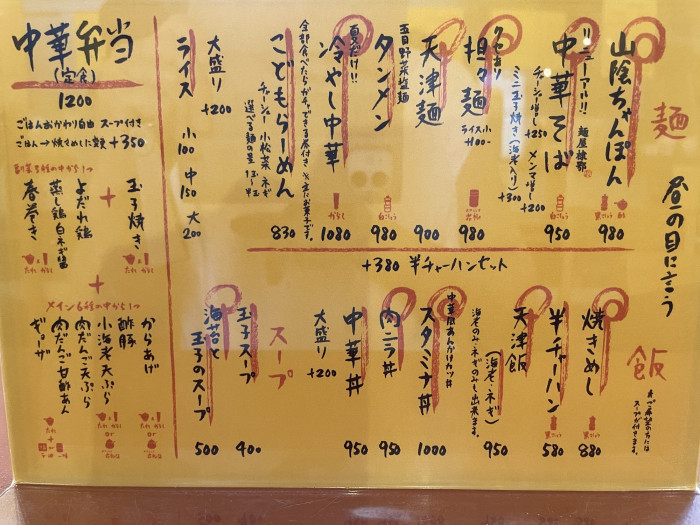 昼の目に言う
麺
山陰ちゃんぽん
980
リニューアル!!
中華そば
麺屋雄郭
チャーシュー増し +250
メンマ増し +200
950
ミニ玉子焼き(海老入り)
+300
担々麺
ライス小
+100
980
天津麺
900
タンメン
五目野菜塩麺
980
夏だけ!!
冷やし中華
1080
こどもらーめん
全部食べたらガチャできる券付き
チャーシュー 小松菜 ネギ
選べる麺の量 1玉・半玉
830
大盛り
+200
ライス
小
100
中
150
大
200
+380 半チャーハンセット
飯
スープが付きます。
焼きめし
880
半チャーハン
580
天津飯
(海老・ネギ)
海老のみ・ネギのみも出来ます。
950
スタミナ丼
中華風あんかけカツ丼
1000
肉ニラ丼
950
中華丼
950
大盛り
+200
スープ
玉子スープ
400
海苔と玉子のスープ
500
中華弁当
(定食)
1200
ごはんおかわり自由 スープ付き
ごはん→焼きめしに変更 +350
副菜5種の中から1つ
玉子焼き
+
よだれ鶏
蒸し鶏 白ネギ醤
春巻き
+
メイン6種の中から1つ
からあげ
酢豚
小海老天ぷら
肉だんご天ぷら
肉だんご甘酢あん
ギョーザ